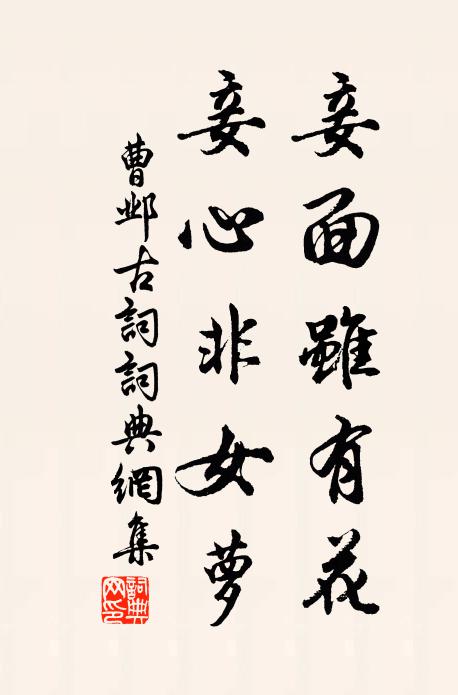 妾面雖有花
妾心非女萝
曹邺古詞詞典網集
詞典網印